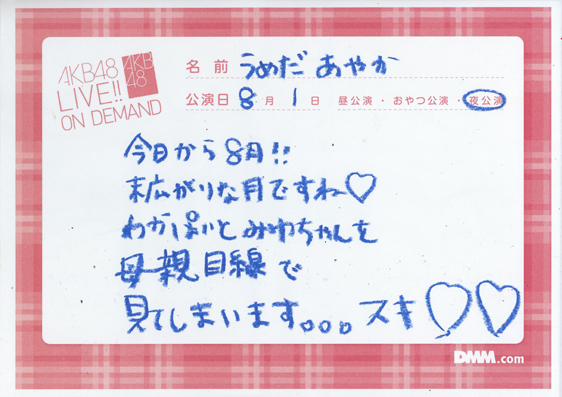 AKB48
LIVE!!
ON DEMAND
AKB
48
名前 うめだ あやか
公演日 8月 1日 昼公演・おやつ公演・夜公演
今日から8月!!
末広がりな月ですね♡
わかぽいとみゆちゃんを
母親目線で
見てしまいます。。。スキ♡♡
DMM.com